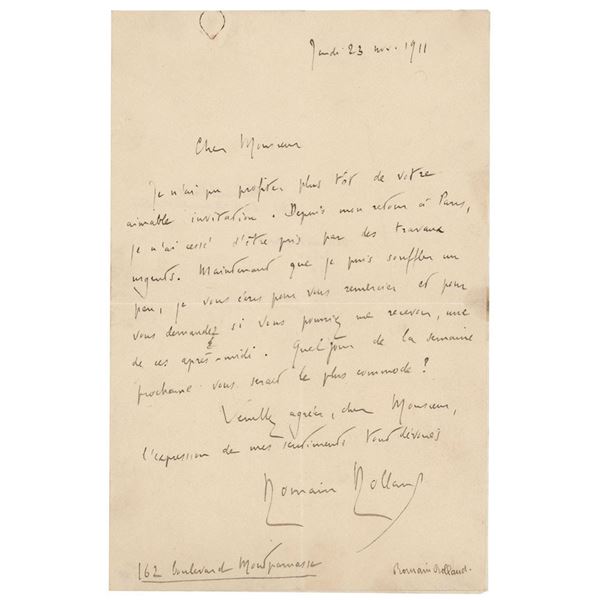 Jeudi 23 nov. 1911
Cher Monsieur
Je n'ai pu profiter plus tôt de votre
aimable invitation. Depuis mon retour à Paris,
je n'ai cessé d'être pris par des travaux
urgents. Maintenant que je puis souffler un
peu, je vous écris pour vous remercier et pour
vous demander si vous pourriez me recevoir, une
de ces après-midi. Quel jour de la semaine
prochaine vous serait le plus commode ?
Veuillez agréer, cher Monsieur,
l'expression de mes sentiments tout dévoués
Romain Rolland
162 boulevard Montparnasse
Romain Rolland.